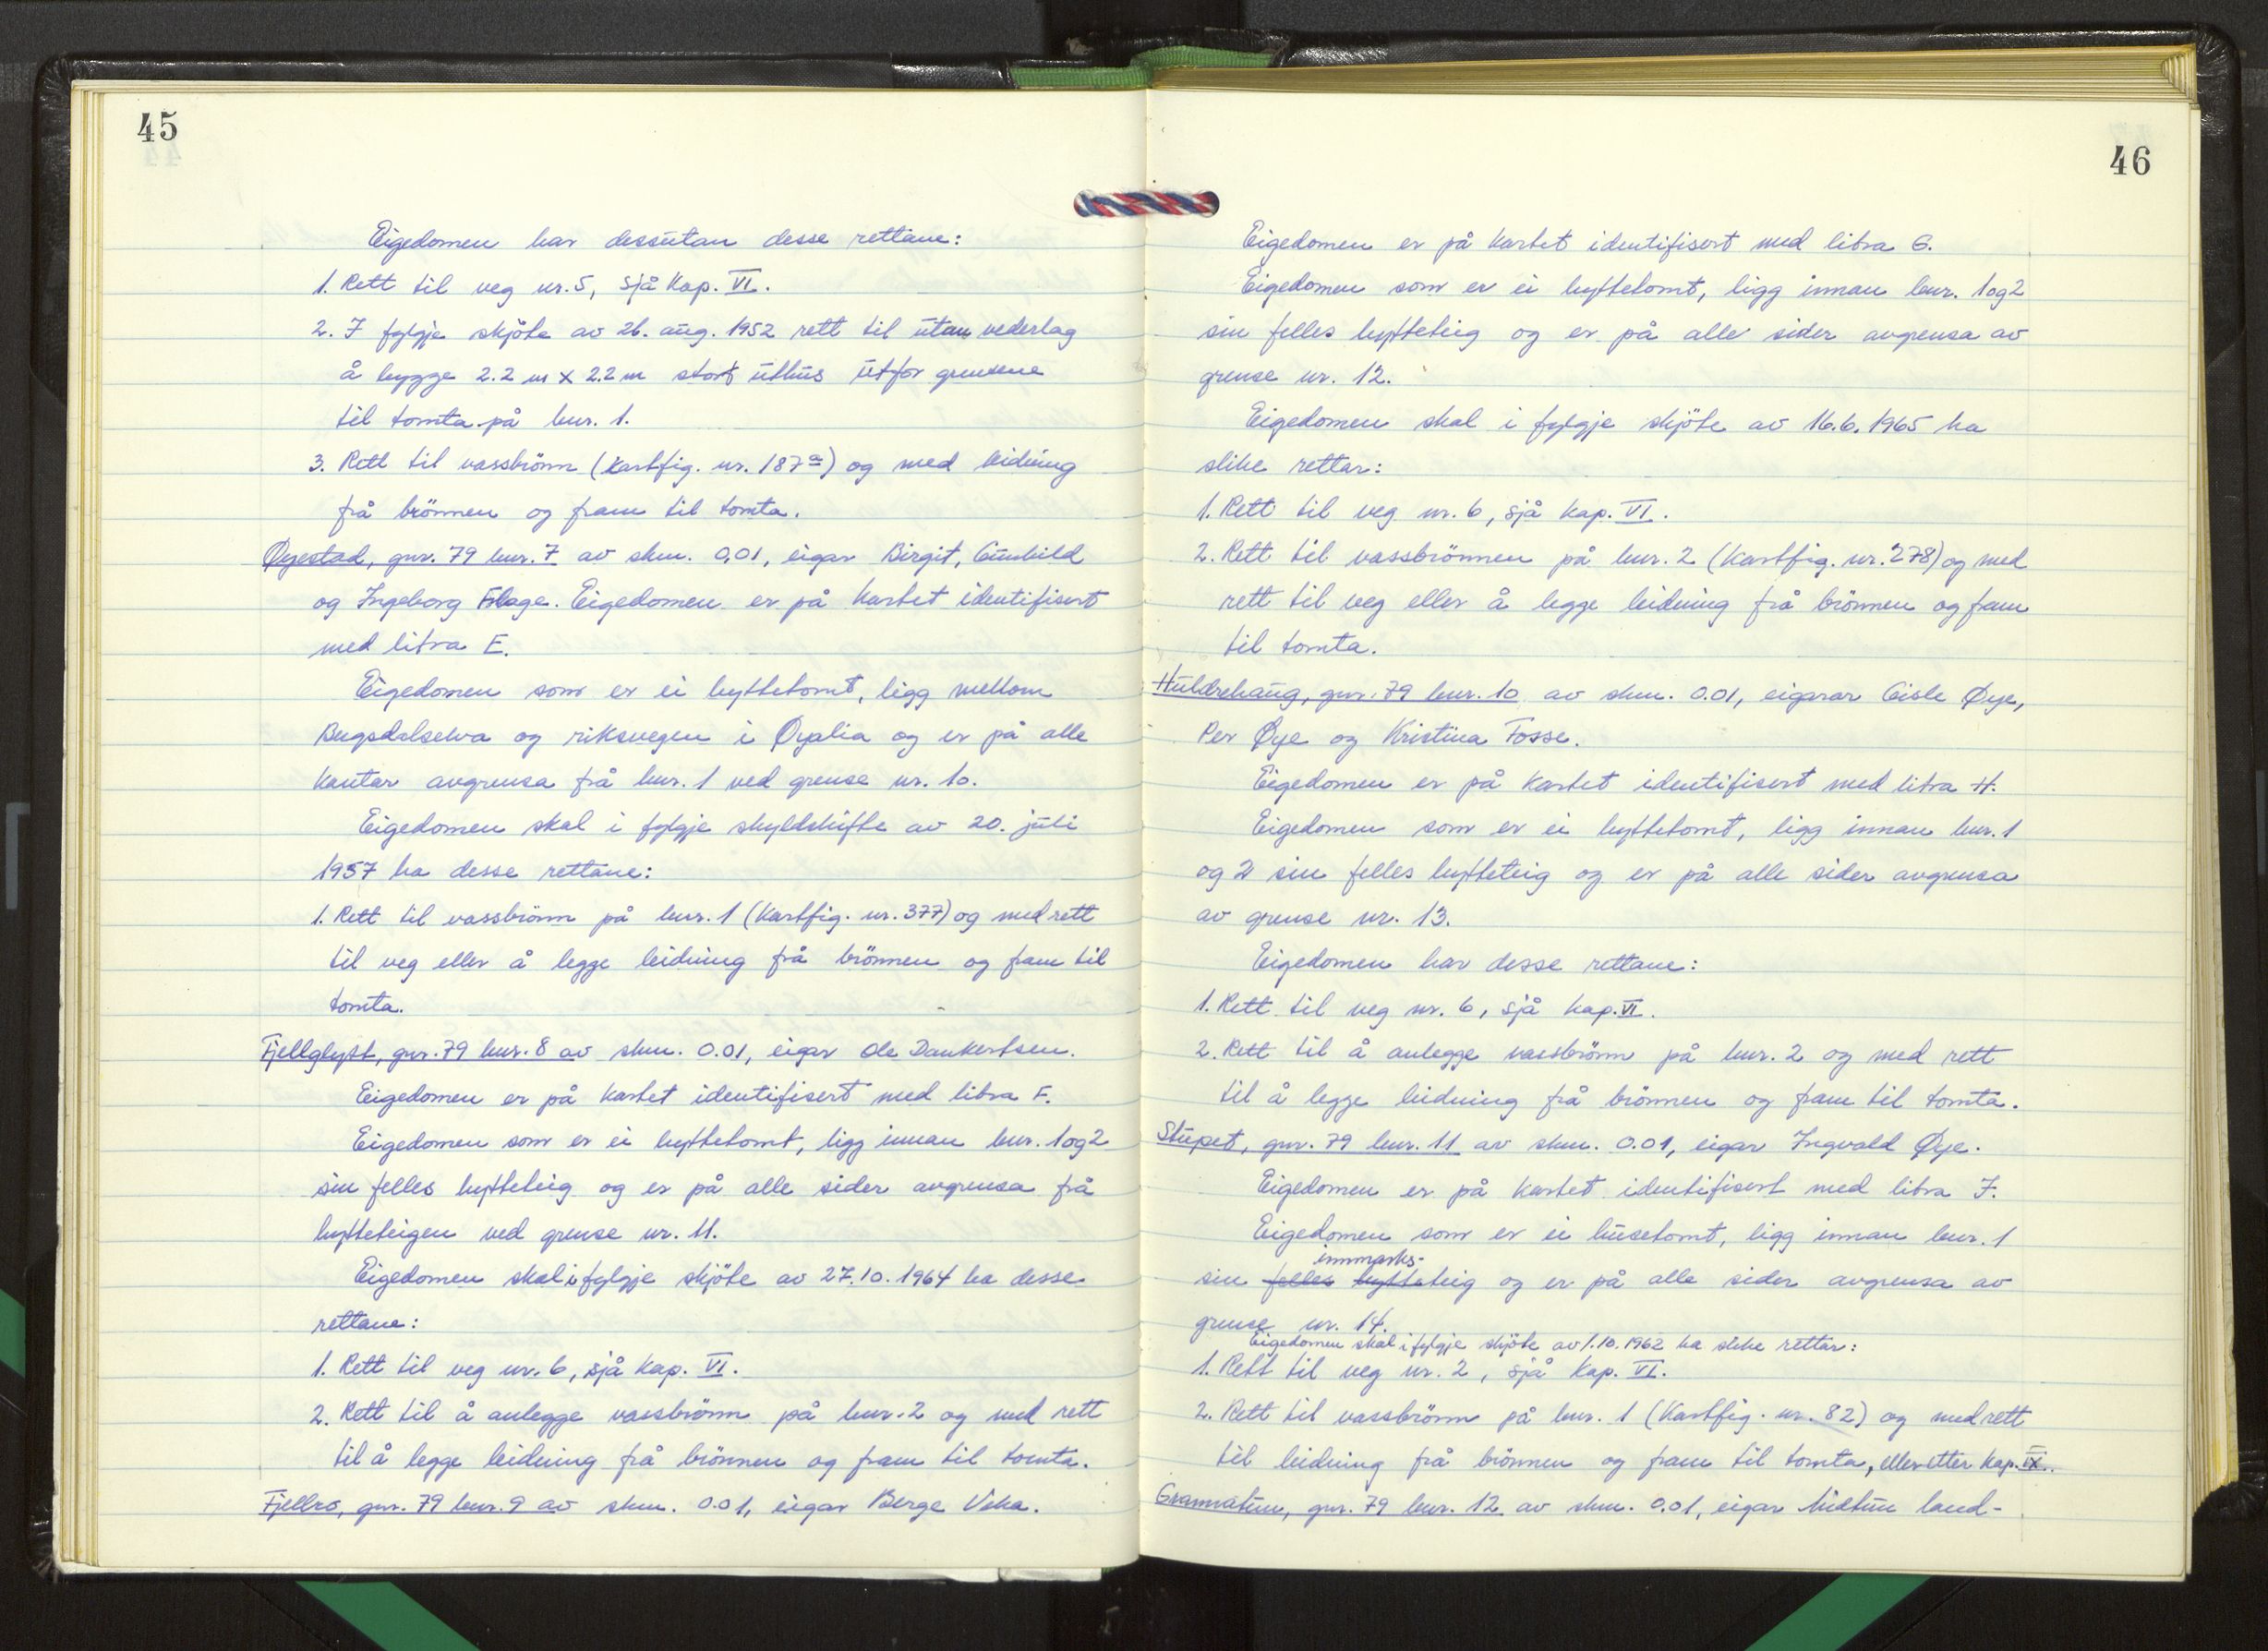 45
Eigedomen har dessutan desse rettane:
1. Rett til veg nr. 5, sjå Kap. VI.
2. I fylgje skjöte av 26. aug. 1952 rett til utan vederlag
å bygge 2.2 m x 2.2 m stort uthus utfor grensene
til tomta på bnr. 1.
3. Rett til vassbrönn (Kartfig. nr. 187a) og med leidning
frå brönnen og fram til tomta.
Øyestad, gnr. 79 bnr. 7 av skm. 0,01, eigar Birgit, Gunhild
og Ingeborg Flage. Eigedomen er på Kartet identifisert
med litra E.
Eigedomen som er ei hyttetomt, ligg mellom
Bugsdalselva og riksvegen i Øyalia og er på alle
Kantar avgrensa frå bnr. 1 ved grense nr. 10.
Eigedomen skal i fylgje skyldskifte av 20. juli
1957 ha desse rettane:
1. Rett til vassbrönn på bnr. 1 (Kartfig. nr. 377) og med rett
til veg eller å legge leidning frå brönnen og fram til
tomta.
Fjellglytt, gnr. 79 bnr. 8 av skm. 0.01, eigar Ole Dankertsen.
Eigedomen er på Kartet identifisert med litra F.
Eigedomen som er ei hyttetomt, ligg innan bnr. 1 og 2
sin felles hytteteig og er på alle sider avgrensa frå
hytteteigen ved grense nr. 11.
Eigedomen skal i fylgje skjöte av 27.10.1964 ha desse
rettane:
1. Rett til veg nr. 6, sjå Kap. VI.
2. Rett til å anlegge vassbrönn på bnr. 2 og med rett
til å legge leidning frå brönnen og fram til tomta.
Fjellro, gnr. 79 bnr. 9 av skm. 0.01, eigar Berge Veka.
46
Eigedomen er på Kartet identifisert med litra G.
Eigedomen som er ei hyttetomt, ligg innan bnr. 1 og 2
sin felles hytteteig og er på alle sider avgrensa av
grense nr. 12.
Eigedomen skal i fylgje skjöte av 16.6.1965 ha
slike rettar:
1. Rett til veg nr. 6, sjå Kap. VI.
2. Rett til vassbrönnen på bnr. 2 (Kartfig. nr. 278) og med
rett til veg eller å legge leidning frå brönnen og fram
til tomta.
Huldrehaug, gnr. 79 bnr. 10 av skm. 0.01, eigarar Gisle Øye,
Per Øye og Kristina Fosse.
Eigedomen er på Kartet identifisert med litra H.
Eigedomen som er ei hyttetomt, ligg innan bnr. 1
og 2 sin felles hytteteig og er på alle sider avgrensa
av grense nr. 13.
Eigedomen har desse rettane:
1. Rett til veg nr. 6, sjå Kap. VI.
2. Rett til å anlegge vassbrönn på bnr. 2 og med rett
til å legge leidning frå brönnen og fram til tomta.
Stupet, gnr. 79 bnr. 11 av skm. 0.01, eigar Ingvald Øye.
Eigedomen er på Kartet identifisert med litra I.
Eigedomen som er ei husetomt, ligg innan bnr. 1
innmarks-
sin felles hytteteig og er på alle sider avgrensa av
grense nr. 14.
Eigedomen skal i fylgje skjöte av 1.10.1962 ha slike rettar:
1. Rett til veg nr. 2, sjå Kap. VI.
2. Rett til vassbrönn på bnr. 1 (Kartfig. nr. 82) og med rett
til leidning frå brönnen og fram til tomta, eller etter Kap. IX.
Grannatun, gnr. 79 bnr. 12 av skm. 0.01, eigar Midtun land-